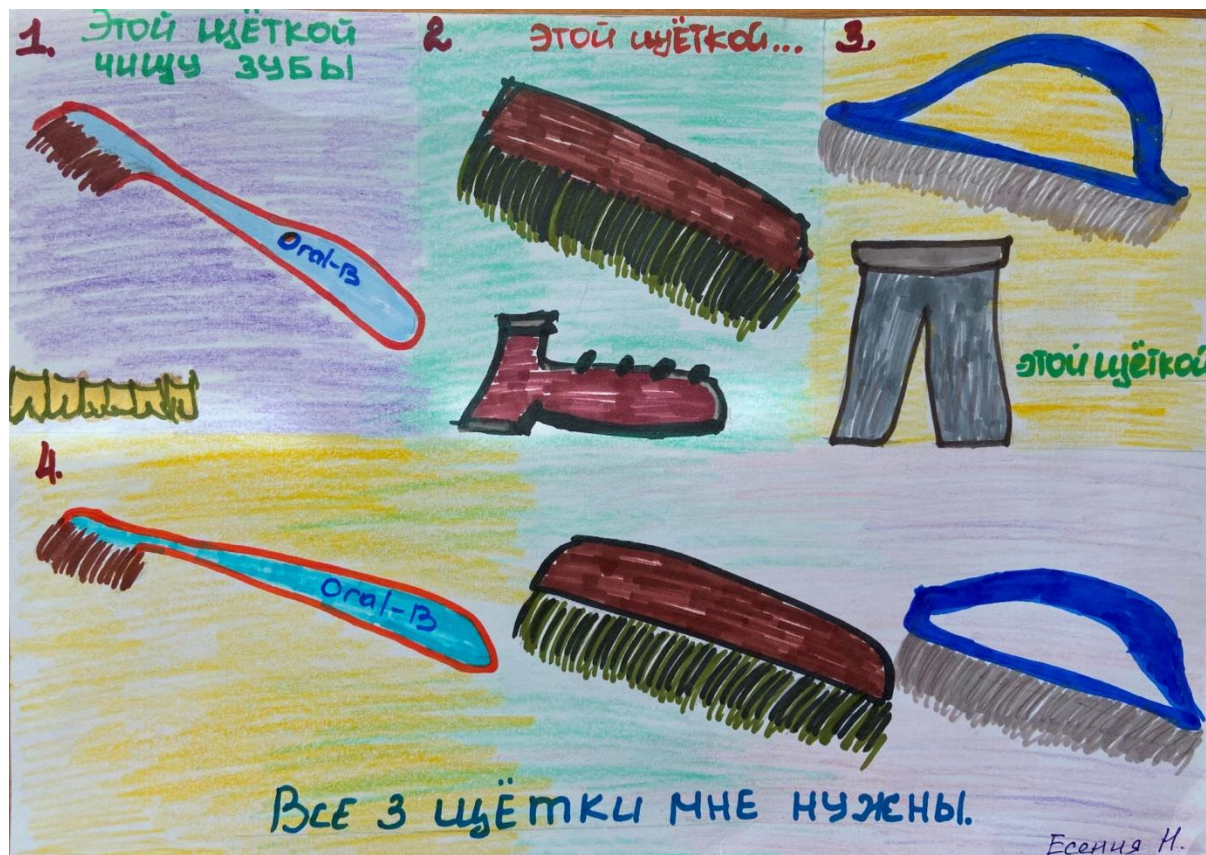 1. Этой щёткой
чищу зубы
2 этой щёткой...
3.
Oral-B
этой щёткой
4.
Oral-B
Все 3 щётки мне нужны.
Есения Н.